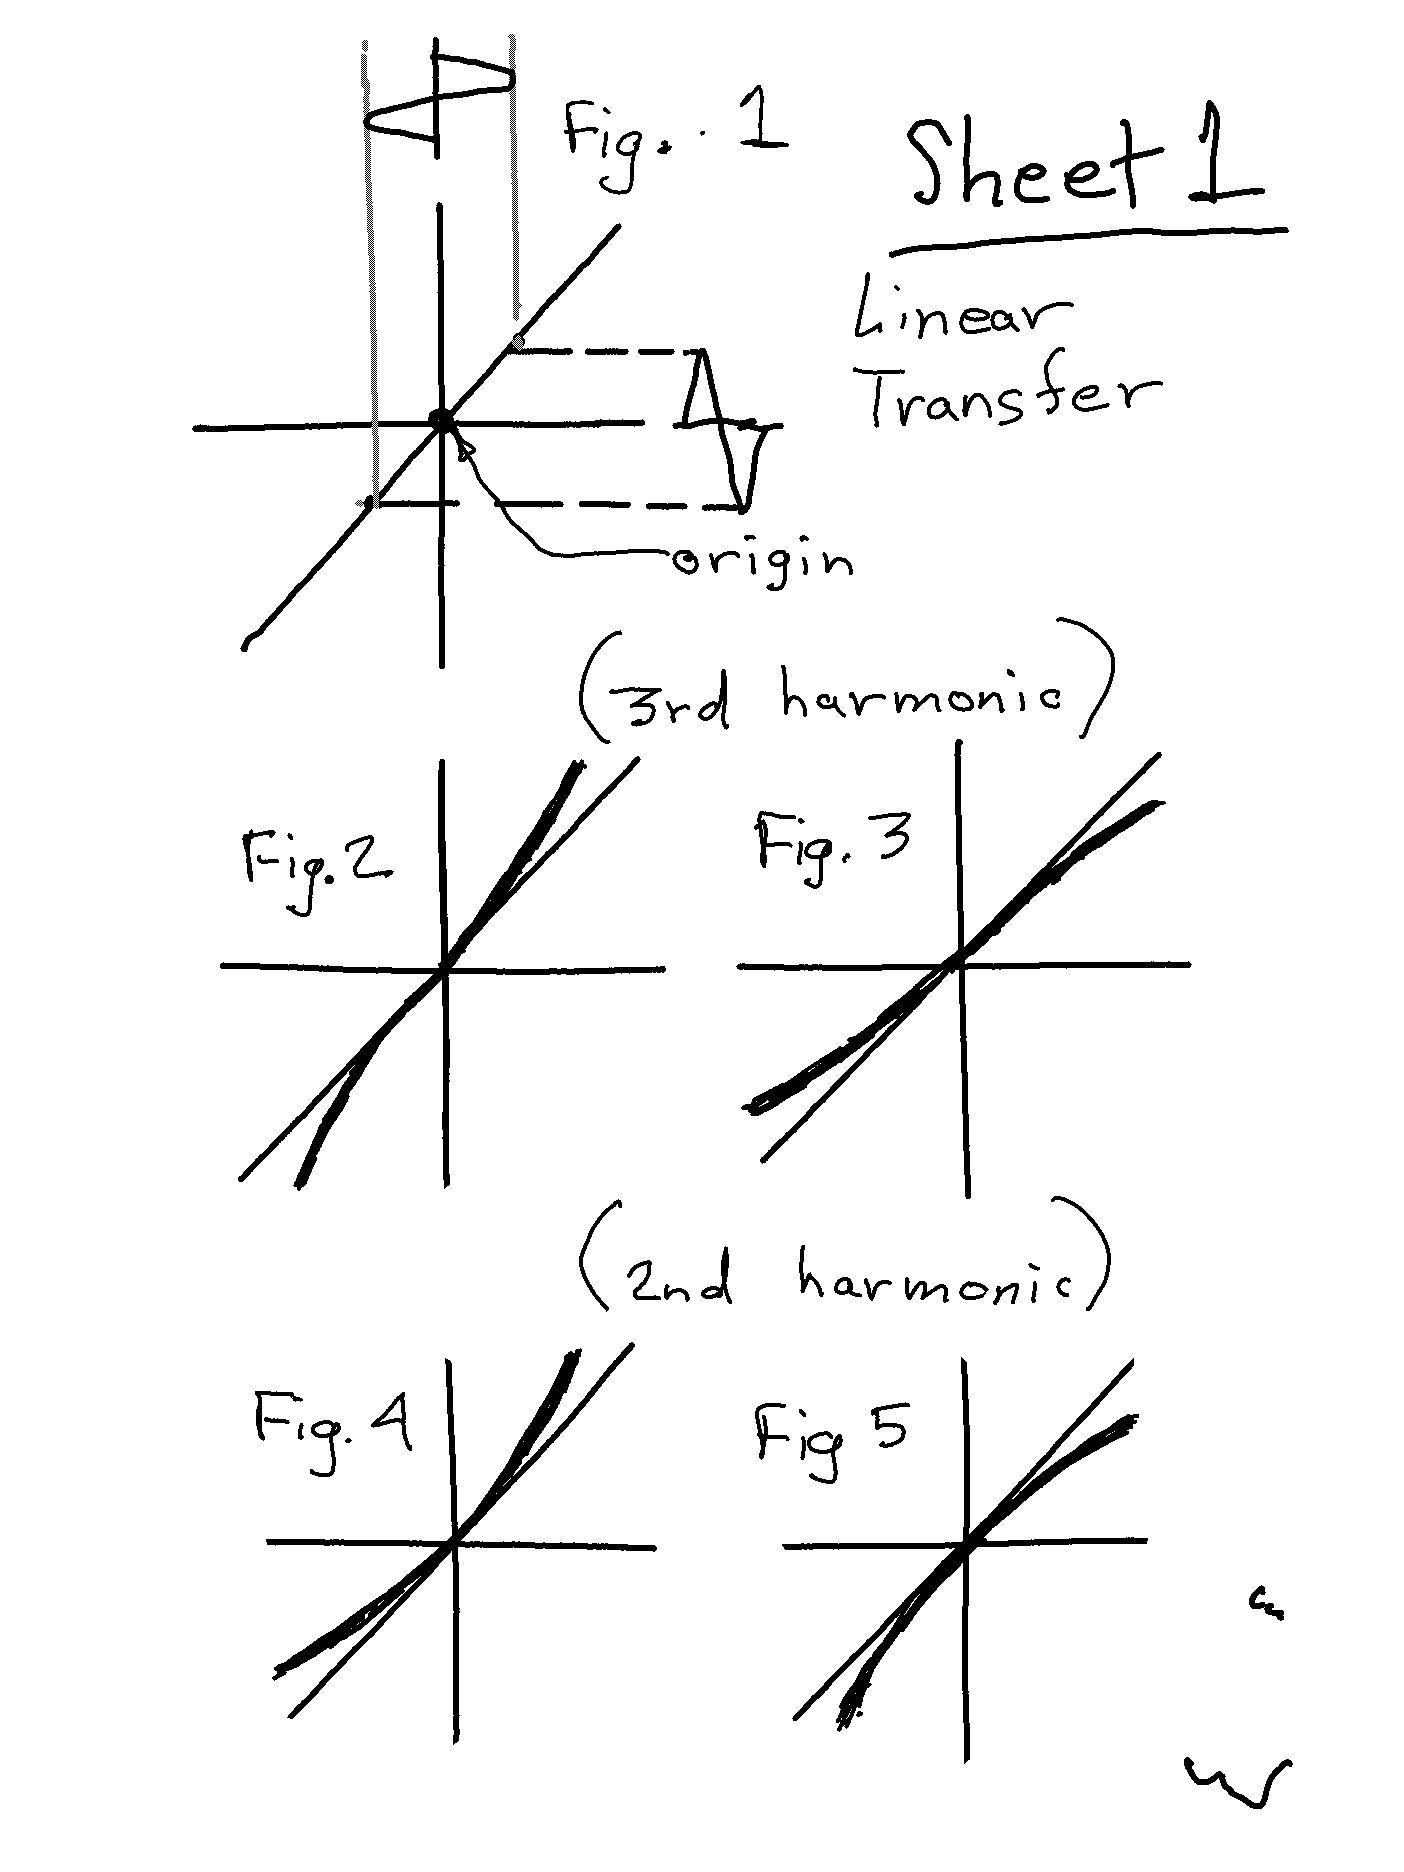 Fig. 1
Sheet 1
Linear
Transfer
origin
(3rd harmonic)
Fig. 2
Fig. 3
(2nd harmonic)
Fig. 4
Fig 5